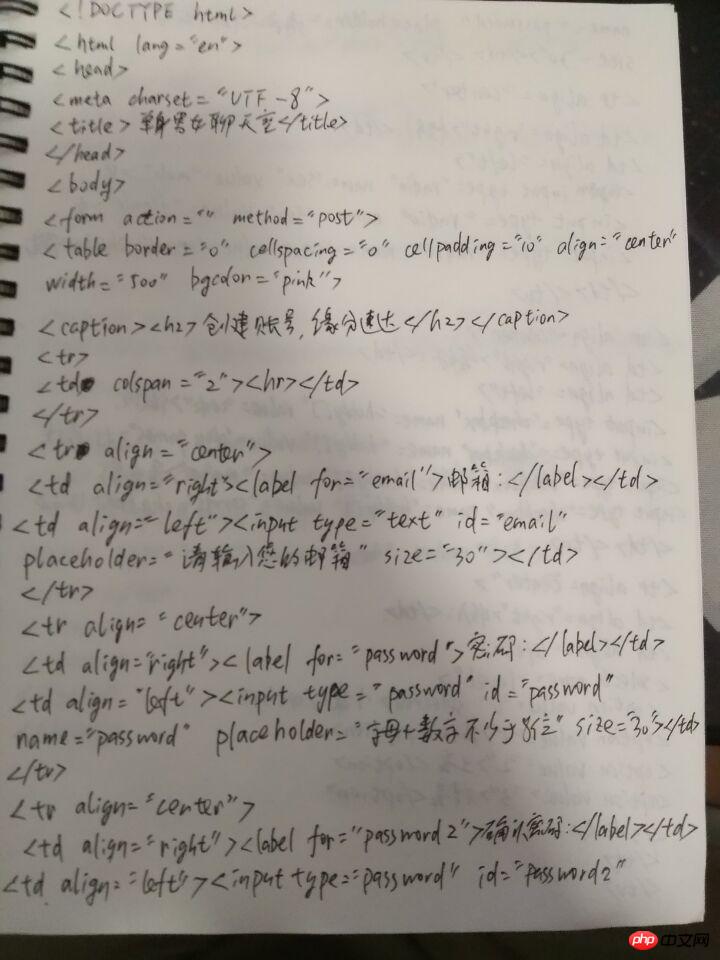 <!DOCTYPE html>
<html lang="en">
<head>
<meta charset="UTF-8">
<title>单身男女聊天室</title>
</head>
<body>
<form action="" method="post">
<table border="0" cellspacing="0" cellpadding="10" align="center"
width="500" bgcolor="pink">
<caption><h2>创建账号,缘分速达</h2></caption>
<tr>
<td colspan="2"><hr></td>
</tr>
<tr align="center">
<td align="right"><label for="email">邮箱:</label></td>
<td align="left"><input type="text" id="email"
placeholder="请输入您的邮箱" size="30"></td>
</tr>
<tr align="center">
<td align="right"><label for="password">密码:</label></td>
<td align="left"><input type="password" id="password"
name="password" placeholder="字母+数字不少于8位" size="30"></td>
</tr>
<tr align="center">
<td align="right"><label for="password2">确认密码:</label></td>
<td align="left"><input type="password" id="password2"
php 中文网